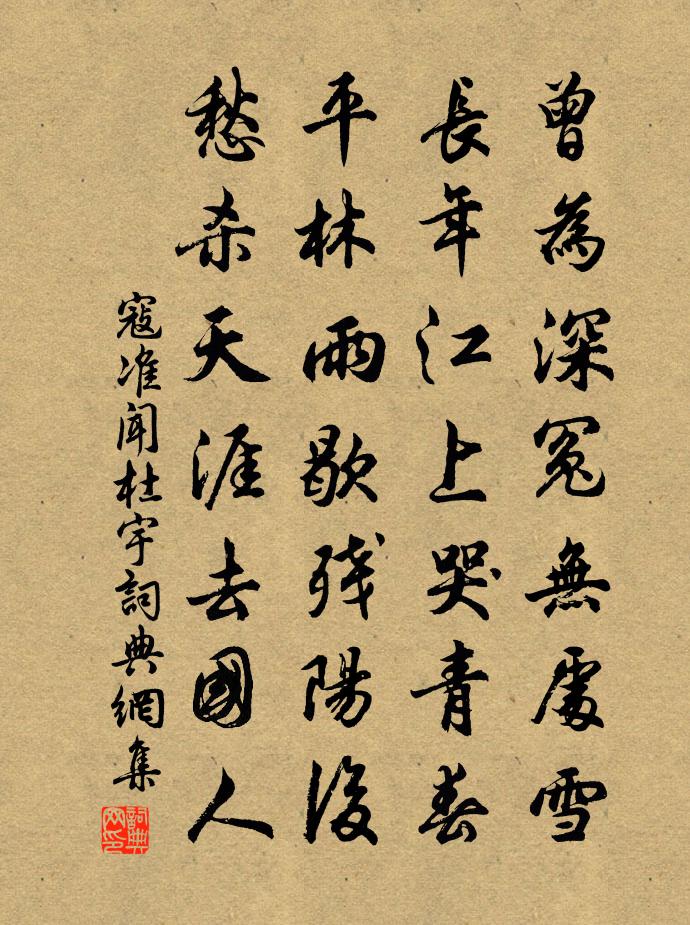 曾為深冤無處雪
長年江上哭青春
平林雨歇殘陽後
愁杀天涯去國人
寇准聞杜宇詞典網集
詞典網印